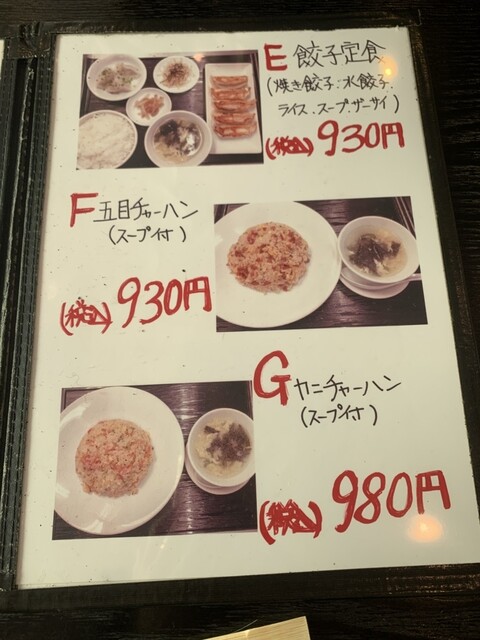 E 餃子定食
(焼き餃子.水餃子.
ライス.スープ.ザーサイ)
(税込)930円
F 五目チャーハン
(スープ付)
(税込)930円
G カニチャーハン
(スープ付)
(税込)980円